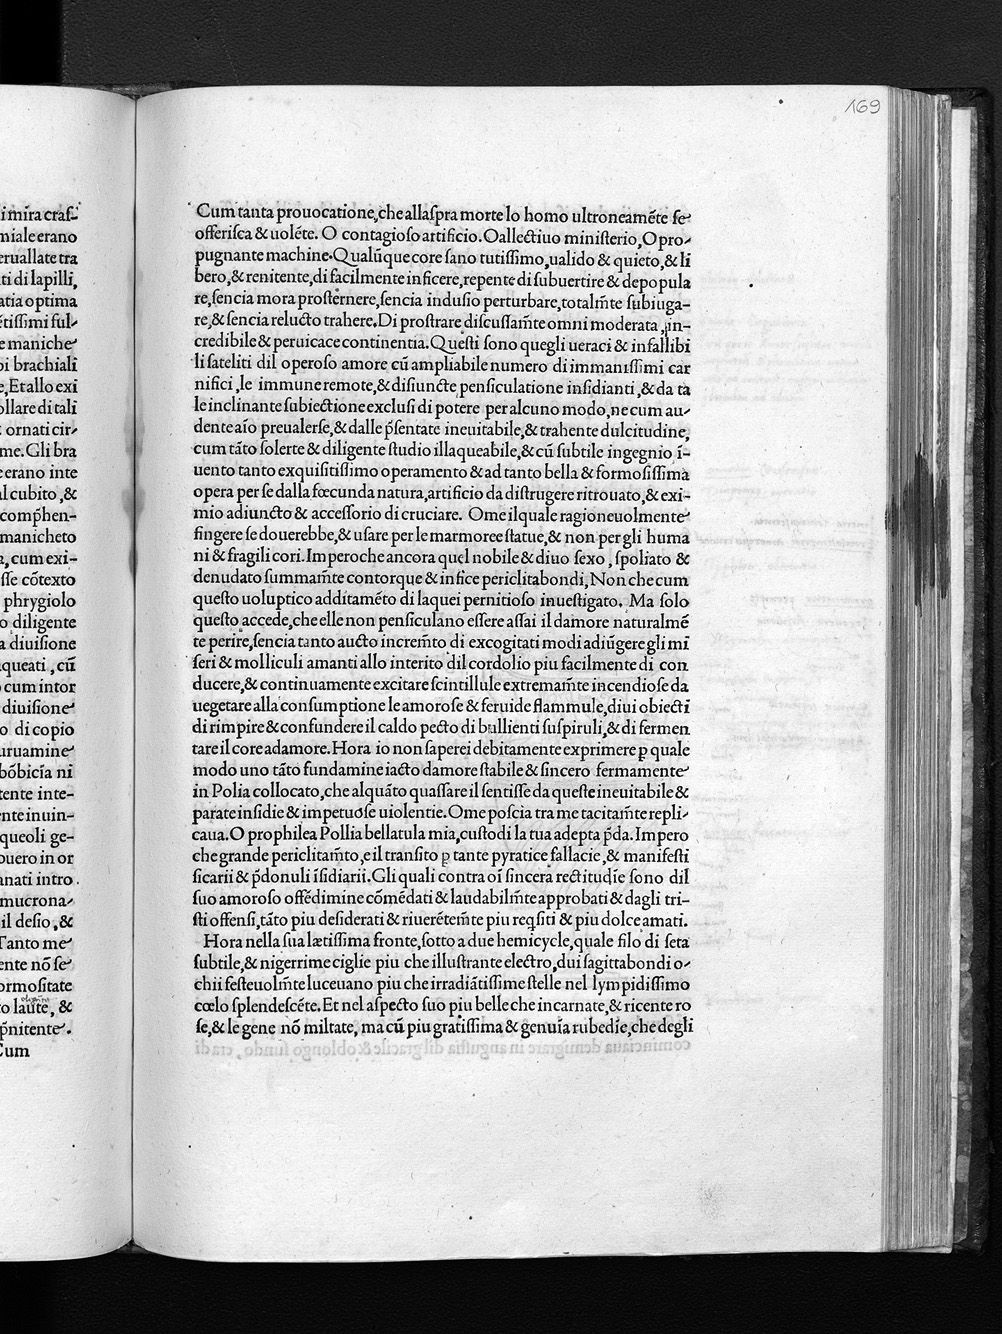 169
i mira craſ-
miale erano
eruallate tra
ti di lapilli,
atia optima
ẽtiſſimi ful-
e maniche
bi brachiali
e, Et allo exi
ollare di tali
ornati cir-
me. Gli bra
e erano inte
al cubito, &
comp̃hen-
manicheto
a, cum exi-
ſſe cõtexto
phrygiolo
o diligente
a diuiſione
queati, cũ
cum intor
diuiſione
o di copio
uruamine
bõbicia ni
tente inte-
nte inuin-
queoli ge-
puero in or
anati intro.
mucrona-
il deſio, &
Tanto me
ente nõ ſe
ormoſitate
to laute, &
p̃nitente.
Cum
Cum tanta prouocatione, che allaſpra morte lo homo ultroneamẽte ſe
offeriſca & uolẽte. O contagioſo artificio. O allectiuo miniſterio, O pro-
pugnante machine. Qualũque core ſano tutiſſimo, ualido & quieto, & li
bero, & renitente, di facilmente inficere, repente di ſubuertire & depopula
re, ſencia mora proſternere, ſencia induſio perturbare, totalm̃te ſubiuga-
re, & ſencia relucto trahere. Di proſtrare diſcuſſam̃te omni moderata, in-
credibile & peruicace continentia. Queſti ſono quegli ueraci & infallibi
li ſateliti dil operoſo amore cũ ampliabile numero di immaniſſimi car
nifici, le immune remote, & diſiuncte penſiculatione inſidianti, & da ta
le inclinante ſubiectione excluſi di potere per alcuno modo, ne cum au-
dente aĩo preualerſe, & dalle p̃ſentate ineuitabile, & trahente dulcitudine,
cum tãto ſolerte & diligente ſtudio illaqueabile, & cũ ſubtile ingegnio ĩ-
uento tanto exquiſitiſſimo operamento & ad tanto bella & formoſiſſima
opera per ſe dalla fœcunda natura, artificio da diſtrugere ritrouato, & exi-
mio adiuncto & acceſſorio di cruciare. Ome il quale ragioneuolmente
fingere ſe douerebbe, & uſare per le marmoree ſtatue, & non per gli huma
ni & fragili cori. Imperoche ancora quel nobile & diuo ſexo, ſpoliato &
denudato ſummam̃te contorque & infice periclitabondi, Non che cum
queſto uoluptico additamẽto di laquei pernitioſo inueſtigato. Ma ſolo
queſto accede, che elle non penſiculano eſſere aſſai il damore naturalmẽ
te perire, ſencia tanto aucto increm̃to di excogitati modi adiũgere gli mi
ſeri & molliculi amanti allo interito dil cordolio piu facilmente di con
ducere, & continuamente excitare ſcintillule extremam̃te incendioſe da
uegetare alla conſumptione le amoroſe & feruide flammule, diui obiecti
di rimpire & confundere il caldo pecto di bullienti ſuſpiruli, & di fermen
tare il core adamore. Hora io non ſaperei debitamente exprimere ꝑ quale
modo uno tãto fundamine iacto damore ſtabile & ſincero fermamente
in Polia collocato, che alquãto quaſſare il ſentiſſe da queſte ineuitabile &
parate inſidie & impetuoſe uiolentie. Ome poſcia tra me tacitam̃te repli-
caua. O prophilea Pollia bellatula mia, cuſtodi la tua adepta p̃da. Impero
che grande periclitam̃to, e il tranſito ꝑ tante pyratice fallacie, & manifeſti
ſicarii & p̃donuli ĩſidiarii. Gli quali contra oĩ ſincera rectitudie ſono dil
ſuo amoroſo offẽdimine cõmẽdati & laudabilm̃te approbati & dagli tri-
ſti offenſi, tãto piu deſiderati & riuerẽtem̃te piu reqſiti & piu dolce amati.
Hora nella ſua lætiſſima fronte, ſotto a due hemicycle, quale filo di ſeta
ſubtile, & nigerrime ciglie piu che illuſtrante electro, dui ſagittabondi o-
chii feſteuolm̃te luceuano piu che irradiãtiſſime ſtelle nel lympidiſſimo
cœlo ſplendeſcẽte. Et nel aſpecto ſuo piu belle che incarnate, & ricente ro
ſe, & le gene nõ miltate, ma cũ piu gratiſſima & genuia rubedie, che degli